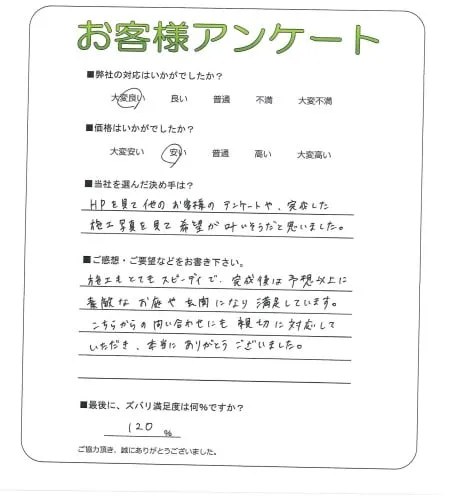 お客様アンケート
■弊社の対応はいかがでしたか？
大変良い　良い　普通　不満　大変不満
■価格はいかがでしたか？
大変安い　安い　普通　高い　大変高い
■当社を選んだ決め手は？
HPを見て他のお客様のアンケートや、完成した
施工写真を見て希望が叶いそうだと思いました。
■ご感想・ご要望などをお書き下さい。
施工もとてもスピーディで、完成後は予想以上に
素敵なお庭や玄関になり満足しています。
こちらからの問い合わせにも親切に対応して
いただき、本当にありがとうございました。
■最後に、ズバリ満足度は何％ですか？
120 ％
ご協力頂き、誠にありがとうございました。